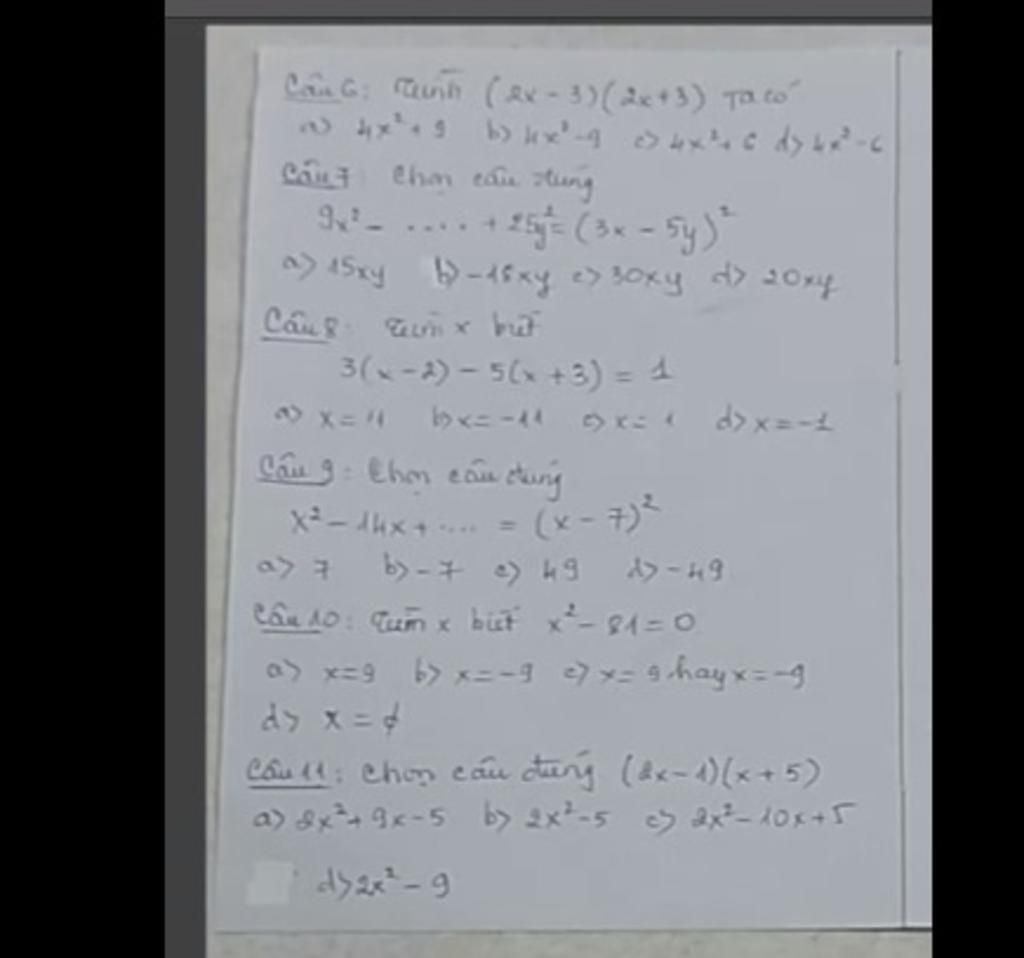 Câu 6: Tính (2x - 3)(2x + 3) Ta có
a) 4x² + 9 b) 4x² - 9 c) 4x² + 6 d) 4x² - 6
Câu 7: Chọn câu đúng
9x² - ..... + 25y² = (3x - 5y)²
a) 15xy b) -15xy c) 30xy d) 20xy
Câu 8: Tìm x biết
3(x - 2) - 5(x + 3) = 1
a) x = 11 b) x = -11 c) x = 1 d) x = -1
Câu 9: Chọn câu đúng
x² - 14x + .... = (x - 7)²
a) 7 b) -7 c) 49 d) -49
Câu 10: Tìm x biết x² - 81 = 0
a) x = 9 b) x = -9 c) x = 9 hay x = -9
d) x = ϕ
Câu 11: Chọn câu đúng (2x - 1)(x + 5)
a) 2x² + 9x - 5 b) 2x² - 5 c) 2x² - 10x + 5
d) 2x² - 9